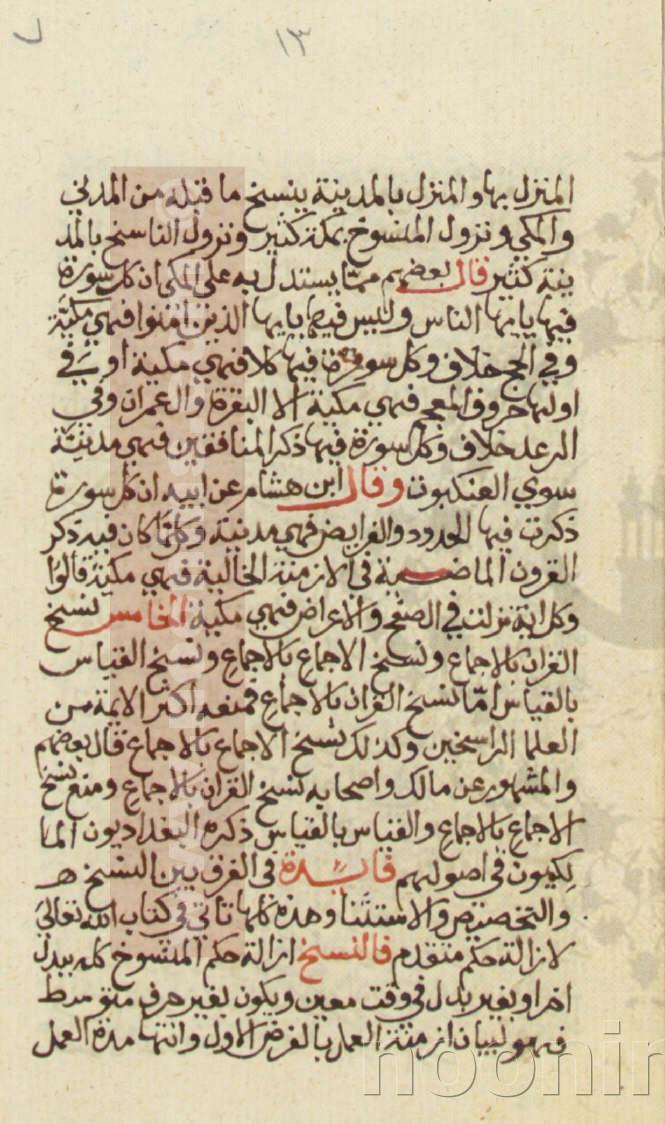 ١٣
المنزل بها والمنزل بالمدينة ينسخ ما قبله من المدني
والمكي ونزول المنسوخ بمكة كثير ونزول الناسخ بالمد
ينة كثير قال بعضهم مما يستدل به على المكي ان كل سورة
فيها يايها الناس وليس فيها يايها الذين امنوا فهي مكية
وفي الحج خلاف وكل سورة فيها كلا فهي مكية او في
اولها حروف المعجم فهي مكية الا البقرة وال عمران وفي
الرعد خلاف وكل سورة فيها ذكر المنافقين فهي مدنية
سوي العنكبوت وقال ابن هشام عن ابيه ان كل سورة
ذكرت فيها الحدود والفرايض فهي مدنية وكلما كان فيه ذكر
القرون الماضية في الازمنة الخالية فهي مكية قالوا
وكل اية نزلت في الصفح والاعراض فهي مكية الخامس نسخ
القران بالاجماع ونسخ الاجماع بالاجماع ونسخ القياس
بالقياس امّا نسخ القران بالاجماع فمنعه اكثر الايمة من
العلما الراسخين وكذلك نسخ الاجماع بالاجماع قال بعضهم
والمشهور عن مالك واصحابه نسخ القران بالاجماع ومنع نسخ
الاجماع بالاجماع والقياس بالقياس ذكره البغداديون الما
لكيون في اصولهم فايدة في الفرق بين النسخ
والتخصيص والاستثنا وهذه كلها تاتي في كتاب الله تعالي
لازالة حكم متقدم فالنسخ ازالة حكم المنسوخ كله ببدل
اخر او بغير بدل في وقت معين ويكون بغير حرف متوسط
فهو لبيان ازمنة العمل بالفرض الاول وانتها مدة العمل
noonin